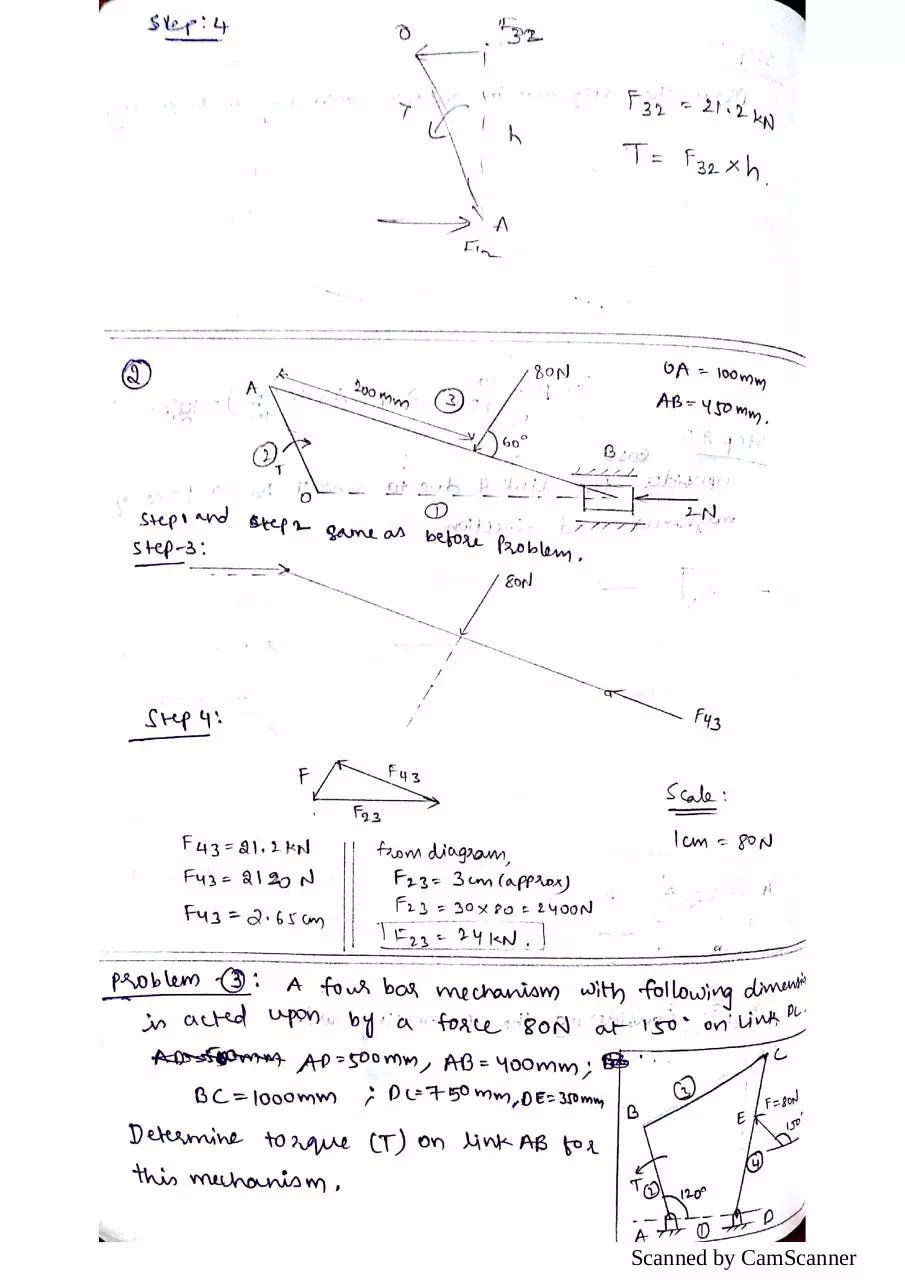 Step: 4
O
F32
T
h
F32 = 21.2 kN
T = F32 × h.
A
F12
②
80N
OA = 100mm
A
200mm
③
AB = 450 mm.
60°
②
T
B
O
①
2N
Step 1 and Step 2 same as before Problem.
Step-3:
80N
F43
Step 4:
F
F43
F23
Scale :
1cm = 80N
F43 = 21.2 kN
F43 = 2120 N
F43 = 2.65 cm
from diagram,
F23 = 3 cm (approx)
F23 = 30 × 80 = 2400N
F23 = 24 KN.
Problem -③: A four bar mechanism with following dimensi
is acted upon by a force 80N at 150° on link DC.
AD = 500mm, AB = 400mm;
BC = 1000mm ; DC = 750mm, DE = 350mm
Determine torque (T) on link AB for
this mechanism.
C
③
B
E
F=80N
150°
④
T
②
120°
A
①
D
Scanned by CamScanner